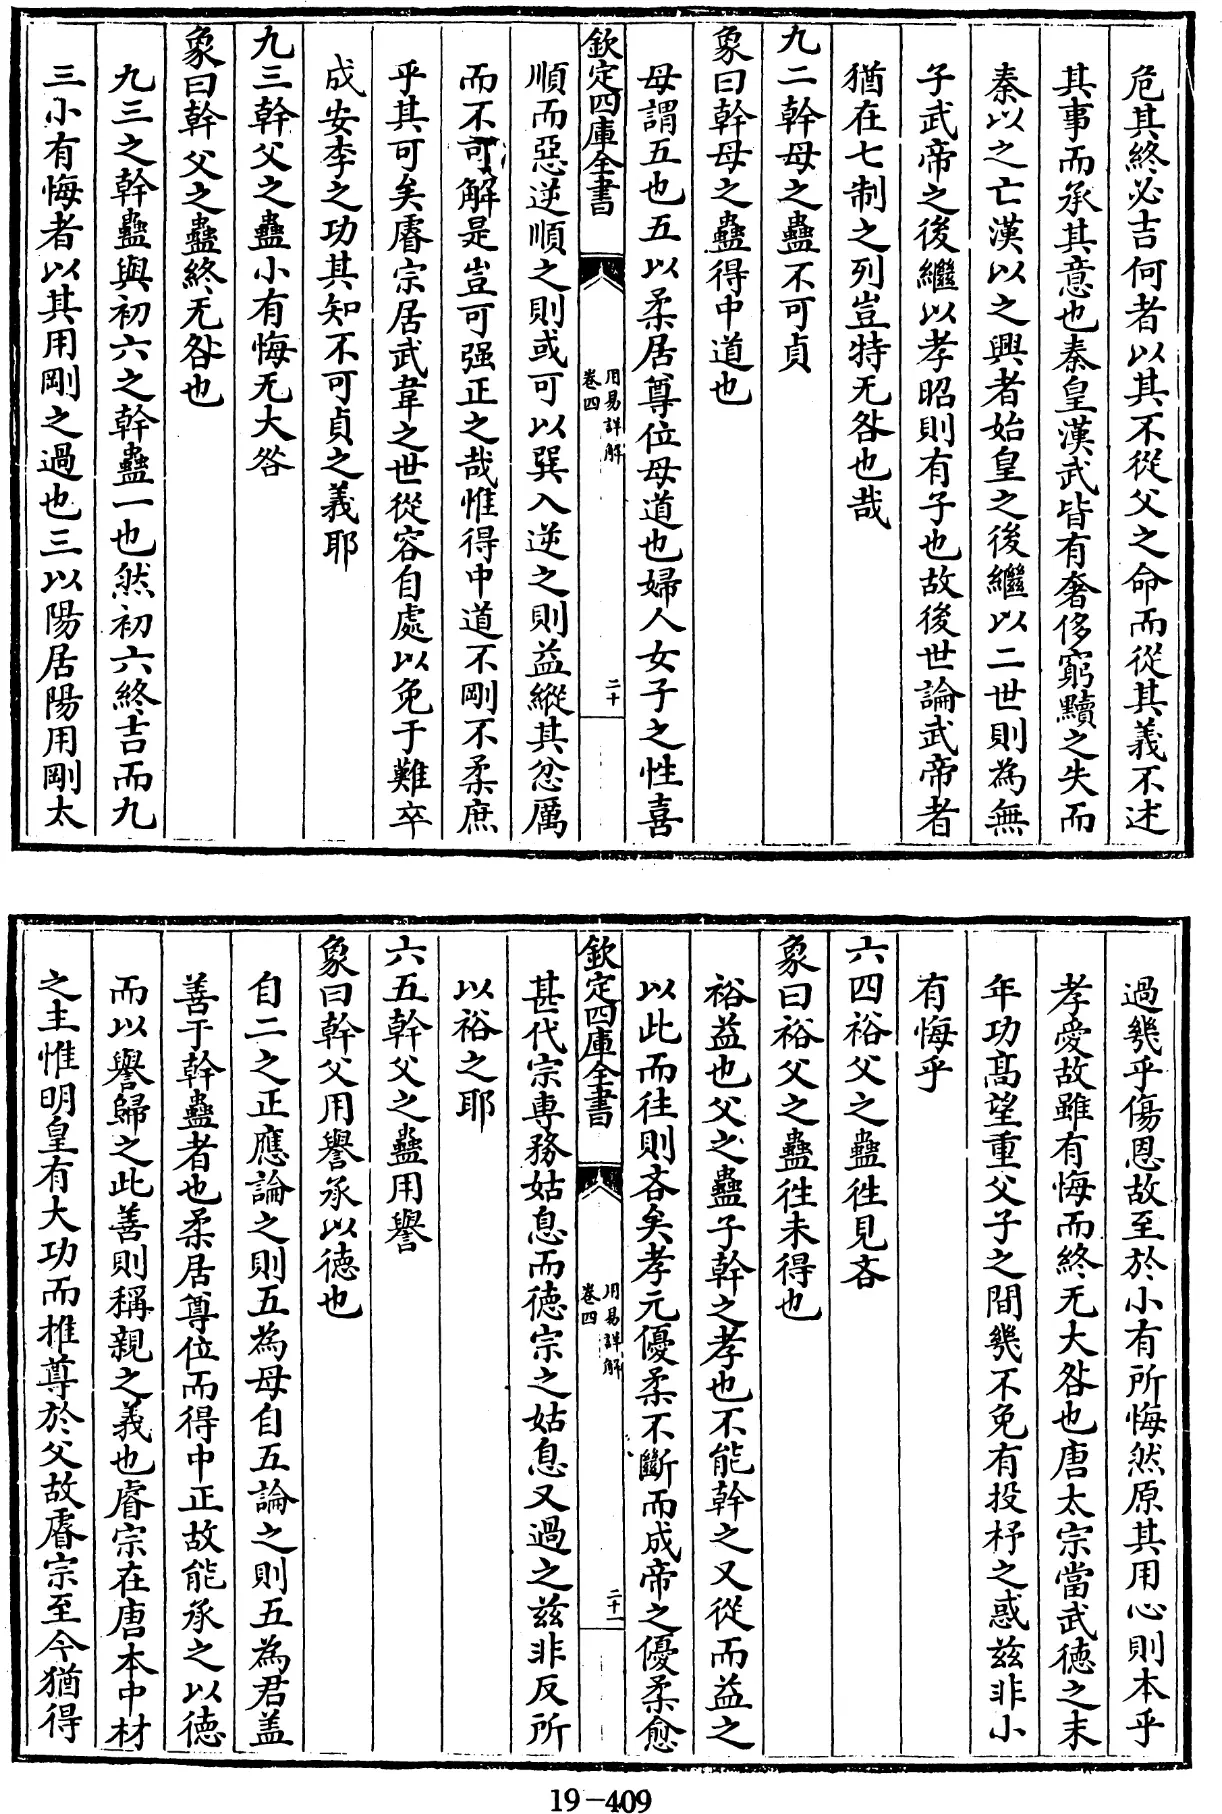 危其終必吉何者以其不從父之命而從其義不述
其事而承其意也秦皇漢武皆有奢侈窮黷之失而
秦以之亡漢以之興者始皇之後繼以二世則為無
子武帝之後繼以孝昭則有子也故後世論武帝者
猶在七制之列豈特无咎也哉
九二幹母之蠱不可貞
象曰幹母之蠱得中道也
母謂五也五以柔居尊位母道也婦人女子之性喜
欽定四庫全書
用易詳解
卷四
二十
順而惡逆順之則或可以巽入逆之則益縱其忿厲
而不可解是豈可强正之哉惟得中道不剛不柔庶
乎其可矣睿宗居武韋之世從容自處以免于難卒
成安李之功其知不可貞之義耶
九三幹父之蠱小有悔无大咎
象曰幹父之蠱終无咎也
九三之幹蠱與初六之幹蠱一也然初六終吉而九
三小有悔者以其用剛之過也三以陽居陽用剛太
過幾乎傷恩故至於小有所悔然原其用心則本乎
孝愛故雖有悔而終无大咎也唐太宗當武德之末
年功髙望重父子之間幾不免有投杼之惑兹非小
有悔乎
六四裕父之蠱徃見吝
象曰裕父之蠱徃未得也
裕益也父之蠱子幹之孝也不能幹之又從而益之
以此而往則吝矣孝元優柔不斷而成帝之優柔愈
欽定四庫全書
用易詳解
卷四
二十一
甚代宗專務姑息而德宗之姑息又過之兹非反所
以裕之耶
六五幹父之蠱用譽
象曰幹父用譽承以德也
自二之正應論之則五為母自五論之則五為君盖
善于幹蠱者也柔居尊位而得中正故能承之以德
而以譽歸之此善則稱親之義也睿宗在唐本中材
之主惟明皇有大功而推尊於父故睿宗至今猶得
19-409